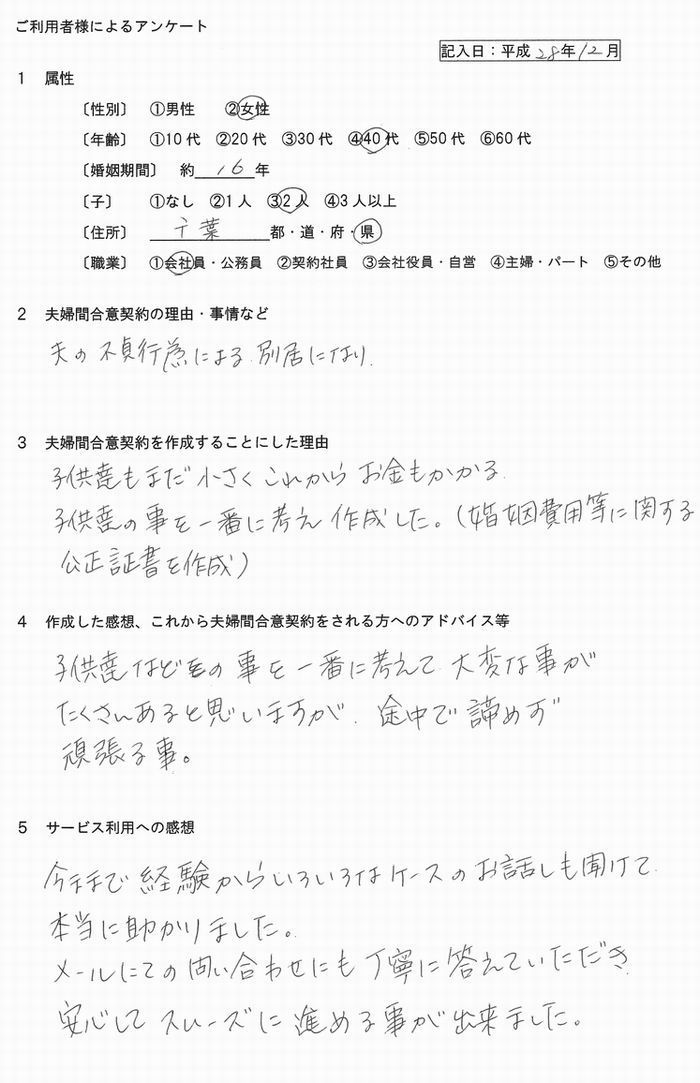 ご利用者様によるアンケート
記入日：平成 28年12月
1 属性
〔性別〕 ①男性 ②女性
〔年齢〕 ①10代 ②20代 ③30代 ④40代 ⑤50代 ⑥60代
〔婚姻期間〕 約 16 年
〔子〕 ①なし ②1人 ③2人 ④3人以上
〔住所〕 千葉 都・道・府・県
〔職業〕 ①会社員・公務員 ②契約社員 ③会社役員・自営 ④主婦・パート ⑤その他
2 夫婦間合意契約の理由・事情など
夫の不貞行為による.別居になり.
3 夫婦間合意契約を作成することにした理由
子供達もまだ小さくこれからお金もかかる.
子供達の事を一番に考え作成した。(婚姻費用等に関する
公正証書を作成)
4 作成した感想、これから夫婦間合意契約をされる方へのアドバイス等
子供達などその事を一番に考えて大変な事が
たくさんあると思いますが.途中で諦めず
頑張る事。
5 サービス利用への感想
今まで経験からいろいろなケースのお話しも聞けて.
本当に助かりました。
メールにての問い合わせにも丁寧に答えていただき.
安心してスムーズに進める事が出来ました。